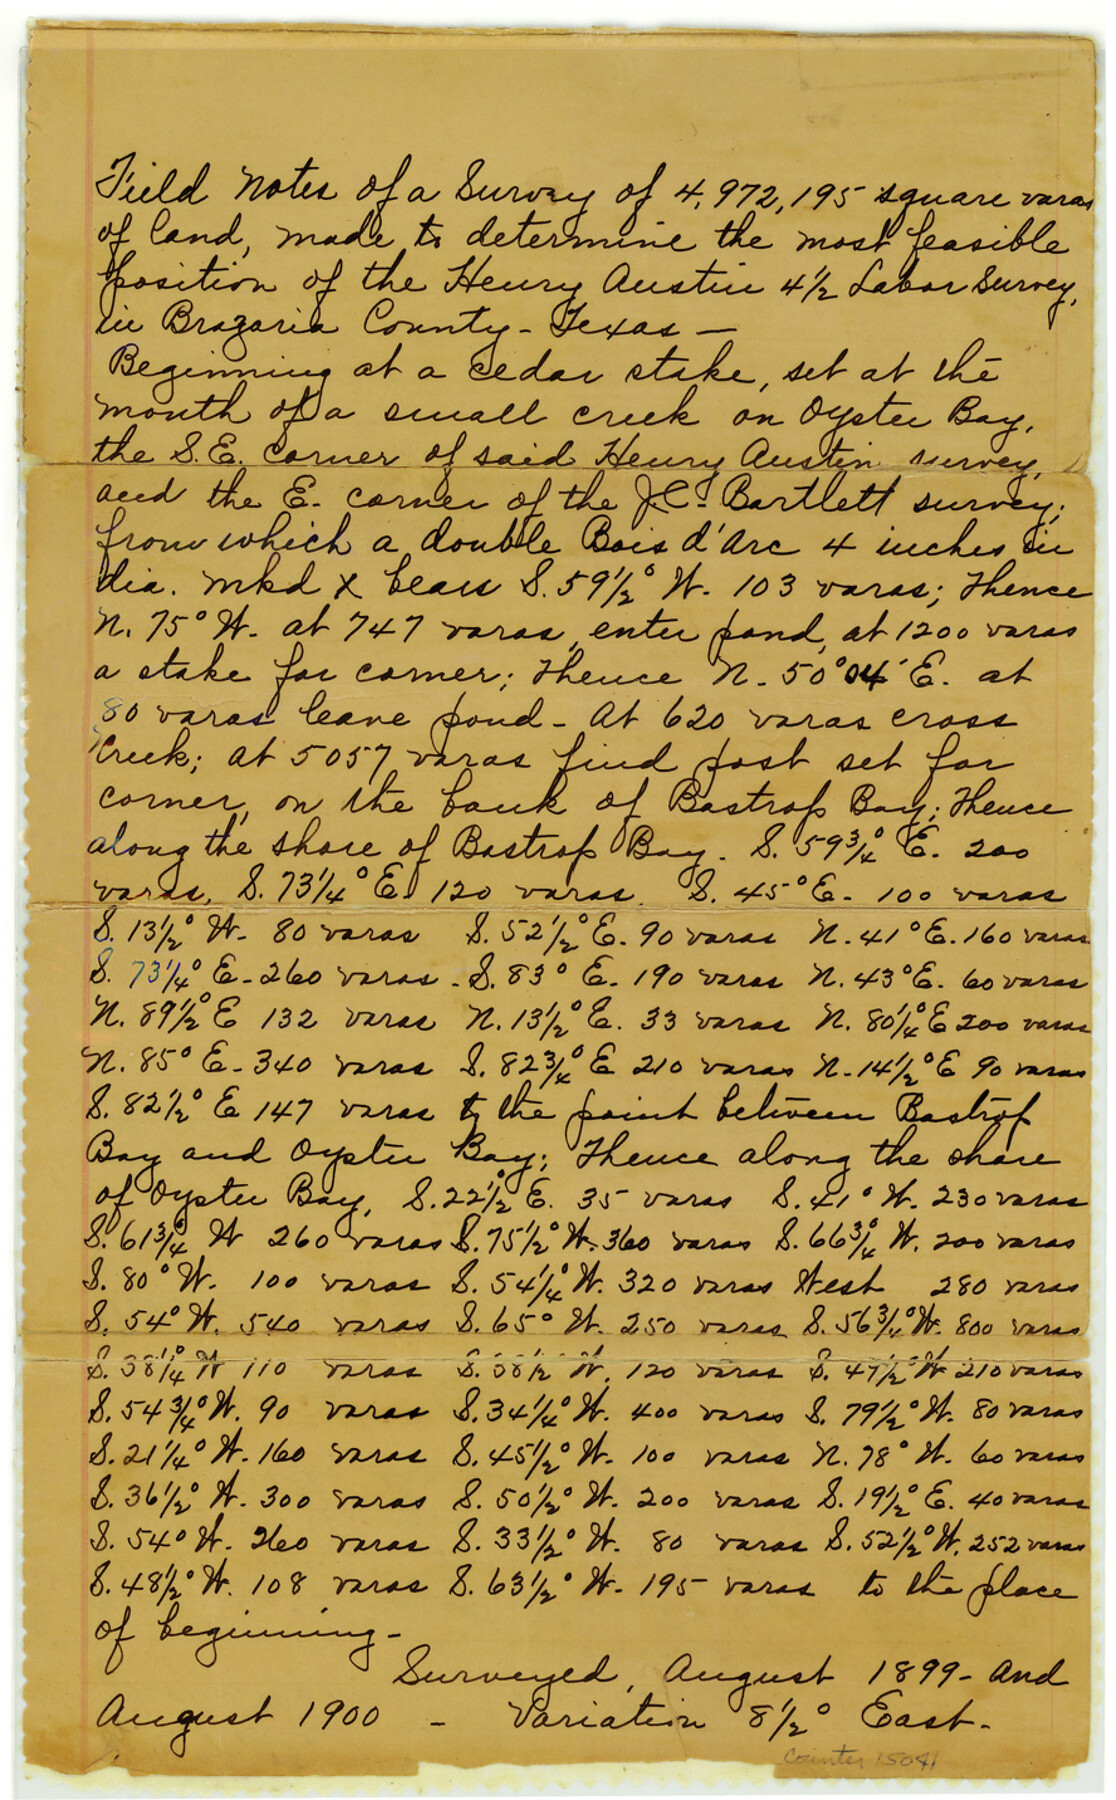 Field Notes of a Survey of 4,972,195 square varas
of land, made to determine the most feasible
position of the Henry Austin 4½ Labor Survey,
in Brazoria County - Texas —
Beginning at a cedar stake, set at the
mouth of a small creek on Oyster Bay,
the S.E. corner of said Henry Austin survey,
and the E. corner of the J.C. Bartlett survey;
from which a double Bois d'Arc 4 inches in
dia. mkd X bears S. 59½° W. 103 varas; Thence
N. 75° W. at 747 varas, enter pond, at 1200 varas
a stake for corner; Thence N. 50° 04' E. at
80 varas leave pond - At 620 varas cross
Creek; at 5057 varas find post set for
corner, on the bank of Bastrop Bay; Thence
along the shore of Bastrop Bay. S. 59¾° E. 200
varas, S. 73¼° E. 120 varas. S. 45° E. 100 varas
S. 13½° W. 80 varas S. 52½° E. 90 varas N. 41° E. 160 varas
S. 73¼° E. 260 varas - S. 83° E. 190 varas N. 43° E. 60 varas
N. 89½° E 132 varas N. 13½° E. 33 varas N. 80¼° E 200 varas
N. 85° E. 340 varas S. 82¾° E 210 varas N. 14½° E 90 varas
S. 82½° E 147 varas to the point between Bastrop
Bay and Oyster Bay; Thence along the shore
of Oyster Bay, S. 22½° E. 35 varas S. 41° W. 230 varas
S. 61¾° W 260 varas S. 75½° W. 360 varas S. 66¾° W. 200 varas
S. 80° W. 100 varas S. 54¼° W. 320 varas West 280 varas
S. 54° W. 540 varas S. 65° W. 250 varas S. 56¾° W. 800 varas
S. 38¼° W 110 varas S. 38½° W. 120 varas S. 47½° W 210 varas
S. 54¾° W. 90 varas S. 34¼° W. 400 varas S. 79½° W. 80 varas
S. 21¼° W. 160 varas S. 45½° W. 100 varas N. 78° W. 60 varas
S. 36½° W. 300 varas S. 50½° W. 200 varas S. 19½° E. 40 varas
S. 54° W. 260 varas S. 33½° W. 80 varas S. 52½° W. 252 varas
S. 48½° W. 108 varas S. 63½° W. 195 varas to the place
of beginning -
Surveyed, August 1899 - and
August 1900 - Variation 8½° East.
Counter 15041